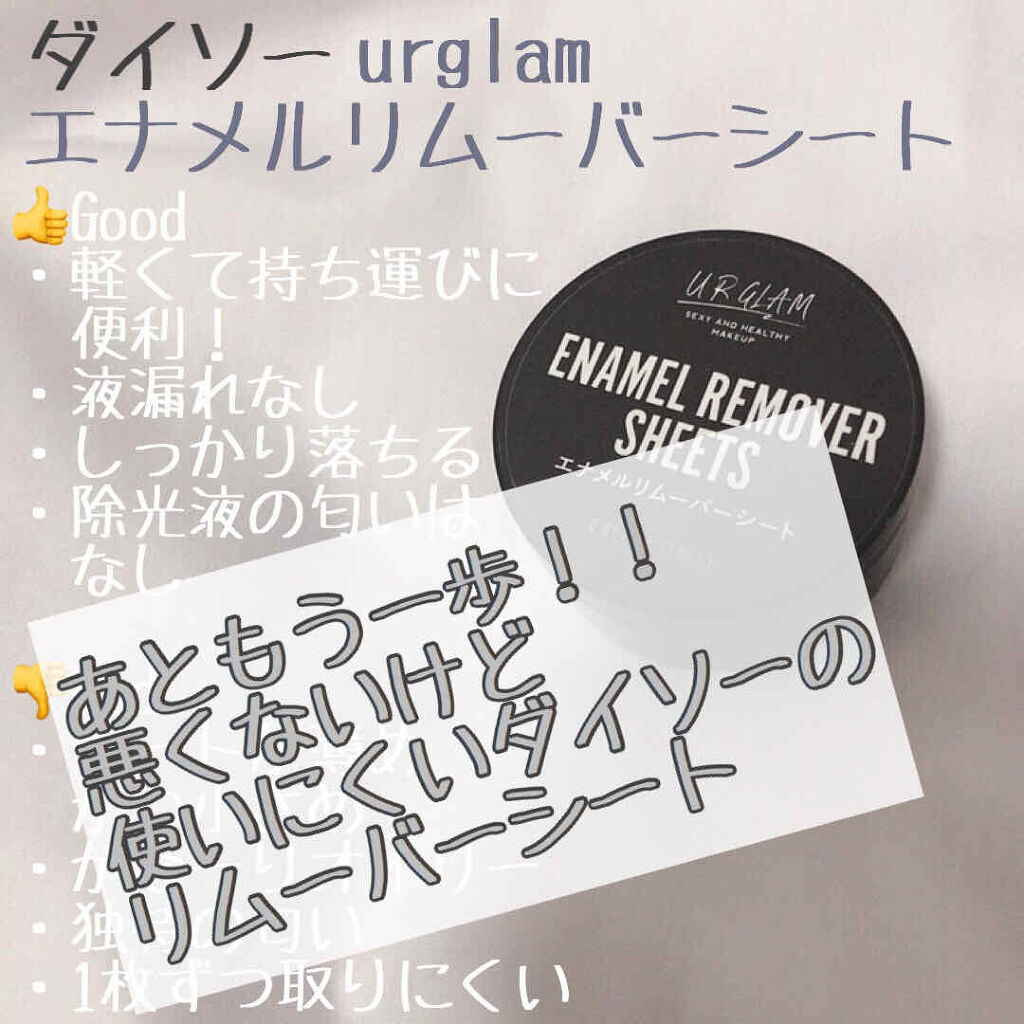 ダイソー urglam
エナメルリムーバーシート
👍Good
・軽くて持ち運びに
便利！
・液漏れなし
・しっかり落ちる
・除光液の匂いは
なし
URGLAM
SEXY AND HEALTHY
MAKEUP
ENAMEL REMOVER
SHEETS
エナメルリムーバーシート
あともう一歩！！
悪くないけど
使いにくいダイソーの
リムーバーシート
👎
・独特の匂い
・1枚ずつ取りにくい